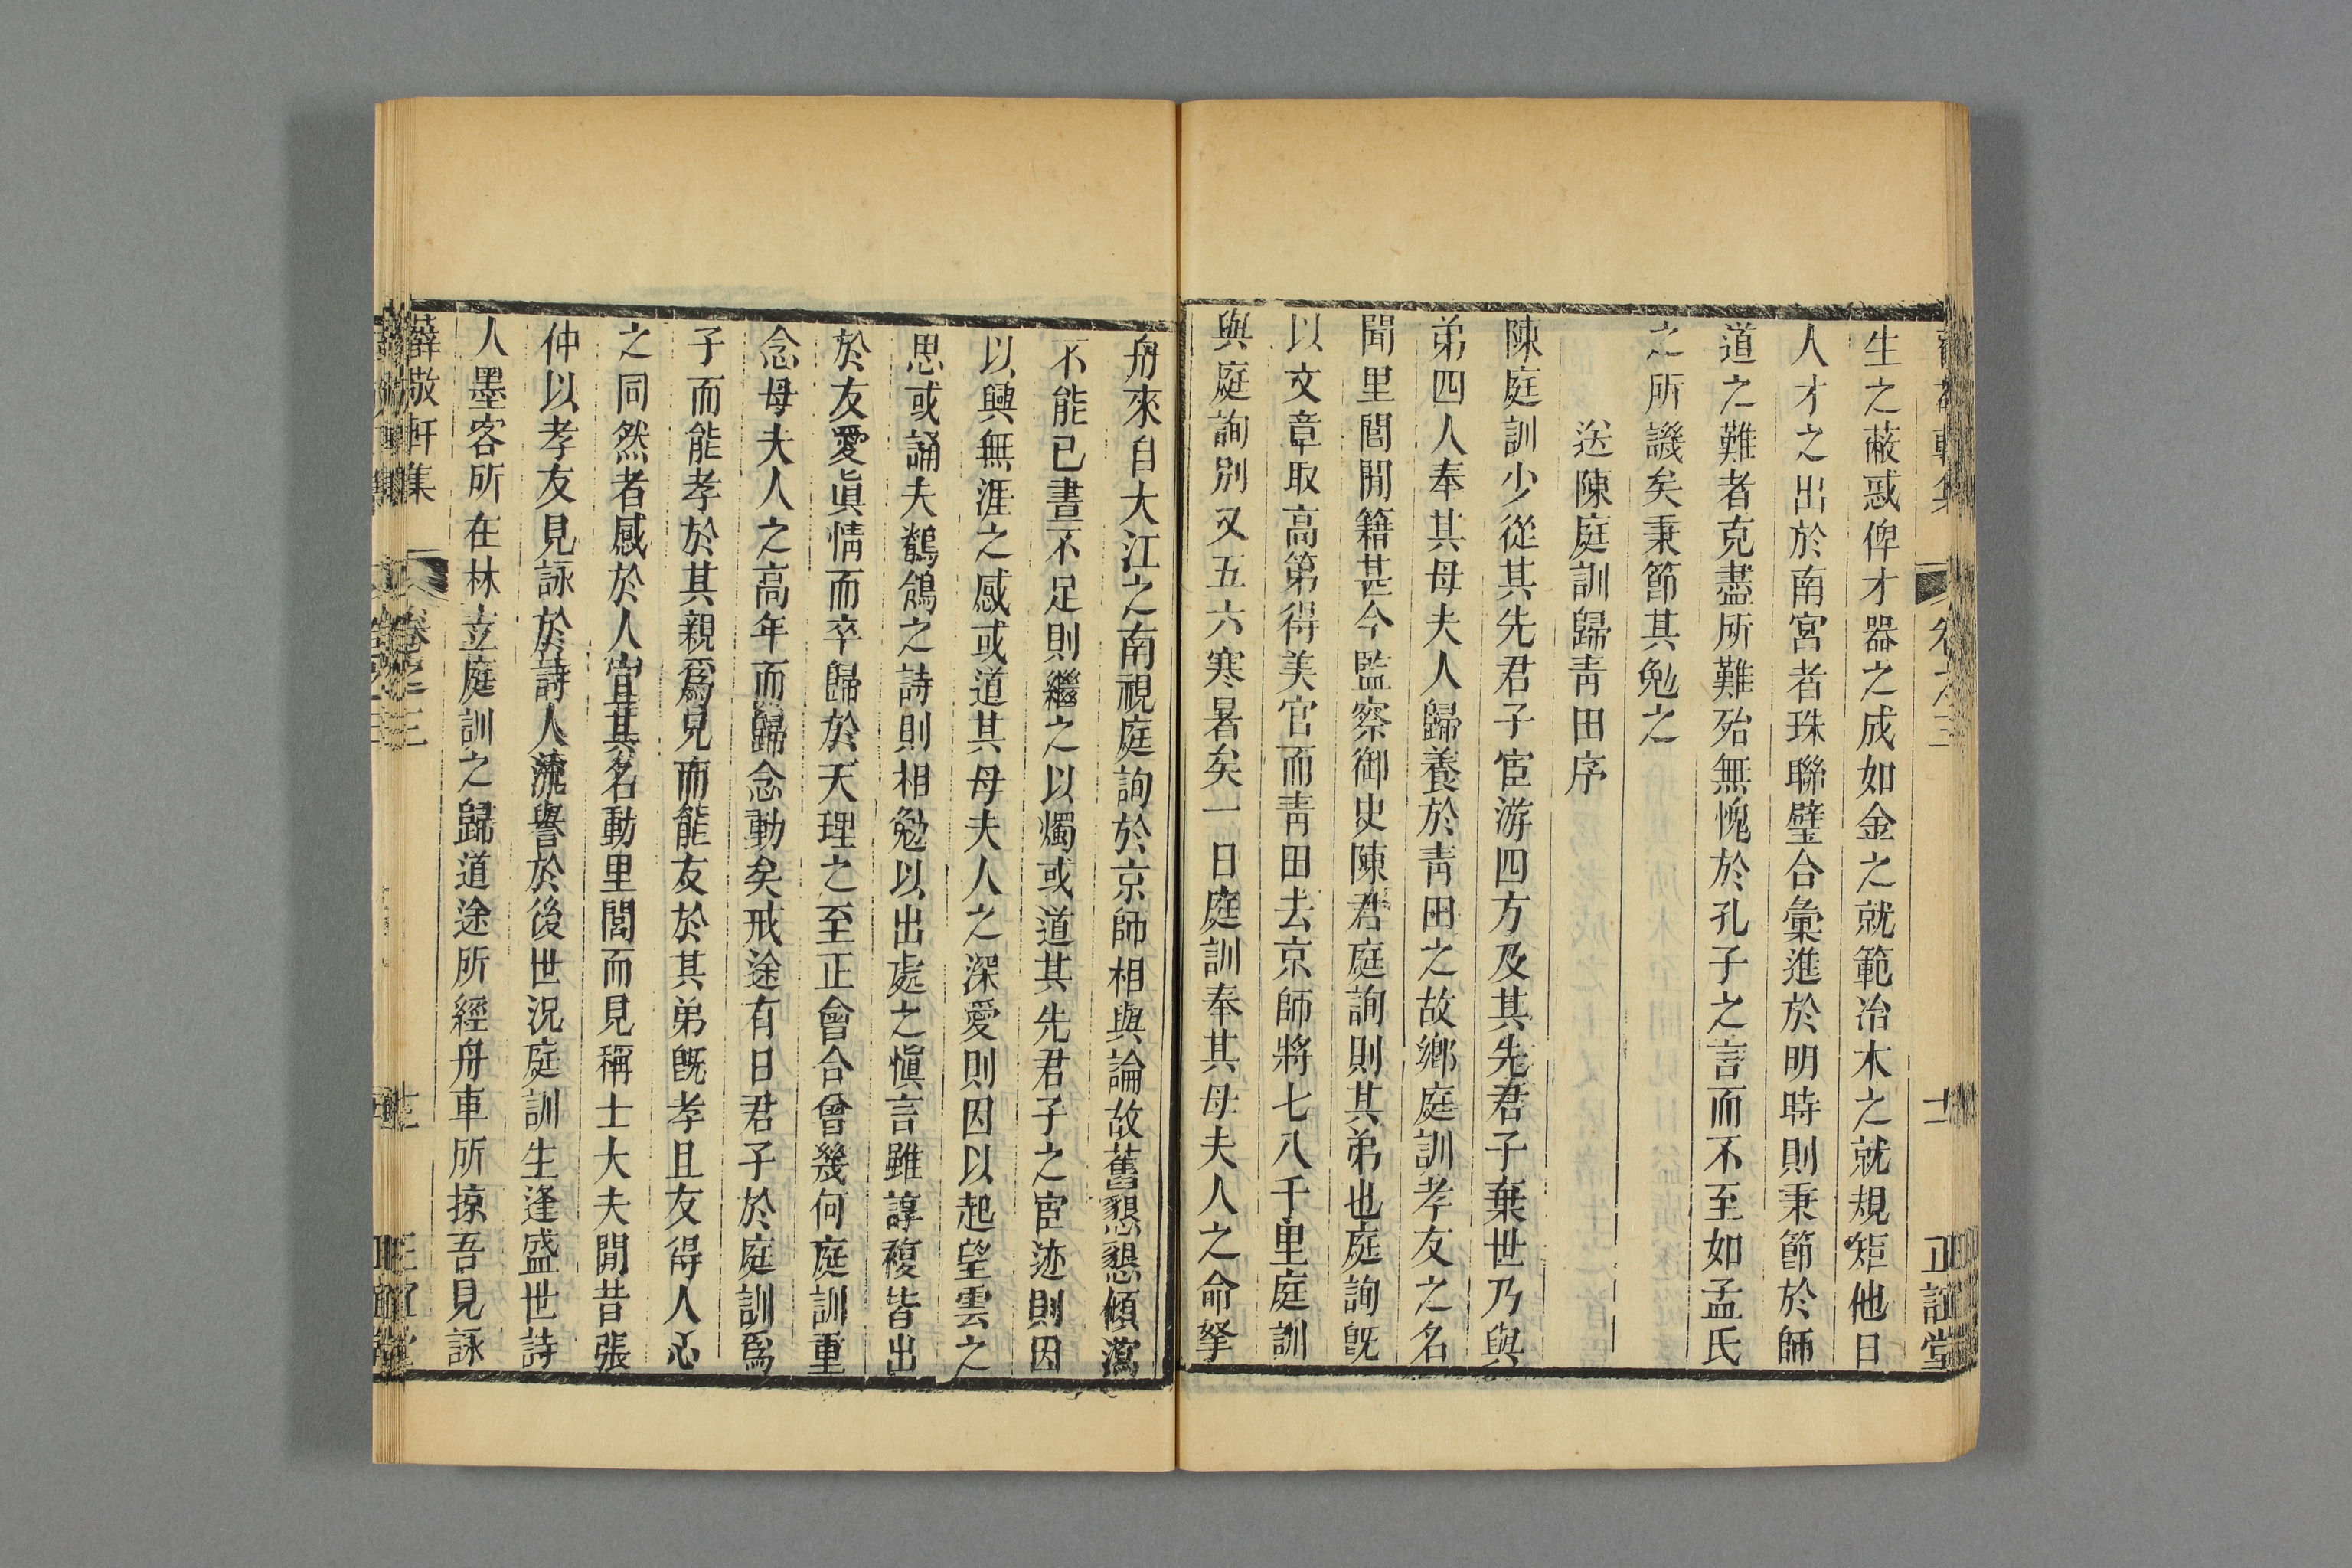 生之蔽惑俾才器之成如金之就範冶木之就規矩他日
人才之出於南宮者珠聯璧合彙進於明時則秉節於師
道之難者克盡所難殆無愧於孔子之言而不至如孟氏
之所譏矣秉節其勉之
送陳庭訓歸靑田序
陳庭訓少從其先君子宦游四方及其先君子棄世乃與
弟四人奉其母夫人歸養於靑田之故鄉庭訓孝友之名
聞里閭閒籍甚今監察御史陳君庭詢則其弟也庭詢旣
以文章取高第得美官而靑田去京師將七八千里庭訓
與庭詢別又五六寒暑矣一日庭訓奉其母夫人之命拏
舟來自大江之南視庭詢於京師相與論故舊懇懇傾瀉
不能已晝不足則繼之以燭或道其先君子之宦迹則因
以興無涯之感或道其母夫人之深愛則因以起望雲之
思或誦夫鶺鴒之詩則相勉以出處之愼言雖諄複皆出
於友愛眞情而卒歸於天理之至正會合曾幾何庭訓重
念母夫人之高年而歸念動矣戒途有日君子於庭訓爲
子而能孝於其親爲兄而能友於其弟旣孝且友得人心
之同然者感於人宜其名動里閭而見稱士大夫閒昔張
仲以孝友見詠於詩人流譽於後世況庭訓生逢盛世詩
人墨客所在林立庭訓之歸道途所經舟車所掠吾見詠
薛敬軒集 卷之三 正誼堂